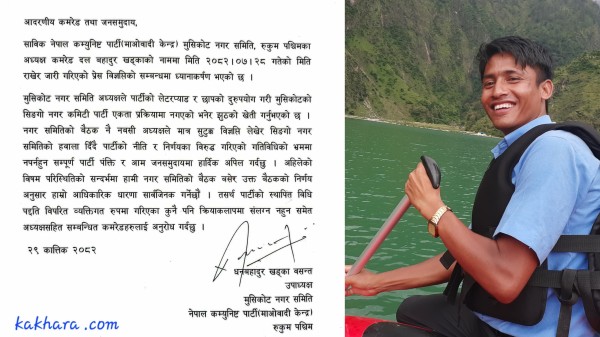 आदरणीय कमरेड तथा जनसमुदाय,
साविक नेपाल कम्युनिष्ट पार्टी(माओवादी केन्द्र) मुसिकोट नगर समिति, रुकुम पश्चिमका
अध्यक्ष कमरेड दल बहादुर खड्काको नाममा मिति २०८२।०७।२८ गतेको मिति
राखेर जारी गरिएको प्रेस विज्ञप्तिको सम्बन्धमा ध्यानाकर्षण भएको छ ।
मुसिकोट नगर समिति अध्यक्षले पार्टीको लेटरप्याड र छापको दुरुपयोग गरी मुसिकोटको
सिङगो नगर कमिटी पार्टी एकता प्रक्रियामा नगएको भनेर झुठको खेती गर्नुभएको छ ।
नगर समितिको बैठक नै नबसी अध्यक्षले मात्र सुटुक्क विज्ञप्ति लेखेर सिङगो नगर
समितिको हवाला दिँदै पार्टीको नीति र निर्णयका विरुद्ध गरिएको गतिविधिको भ्रममा
नपर्नहुन सम्पूर्ण पार्टी पंक्ति र आम जनसमुदायमा हार्दिक अपिल गर्दछु । अहिलेको
विषम परिस्थितिको सन्दर्भमा हामी नगर समितिको बैठक बसेर उक्त बैठकको निर्णय
अनुसार हाम्रो आधिकारिक धारणा सार्वजिनक गर्नेछौं । तसर्थ पार्टीको स्थापित विधि
पद्दती विपरित व्यक्तिगत रुपमा गरिएका कुनै पनि क्रियाकलापमा संलग्न नहुन समेत
अध्यक्षसहित सम्बन्धित कमरेडहरुलाई अनुरोध गर्दछु ।
२९ कात्तिक २०८२
धनबहादुर खड्का वसन्त
उपाध्यक्ष
मुसिकोट नगर समिति
नेपाल कम्युनिष्ट पार्टी(माओवादी केन्द्र)
रुकुम पश्चिम
kakhara.com